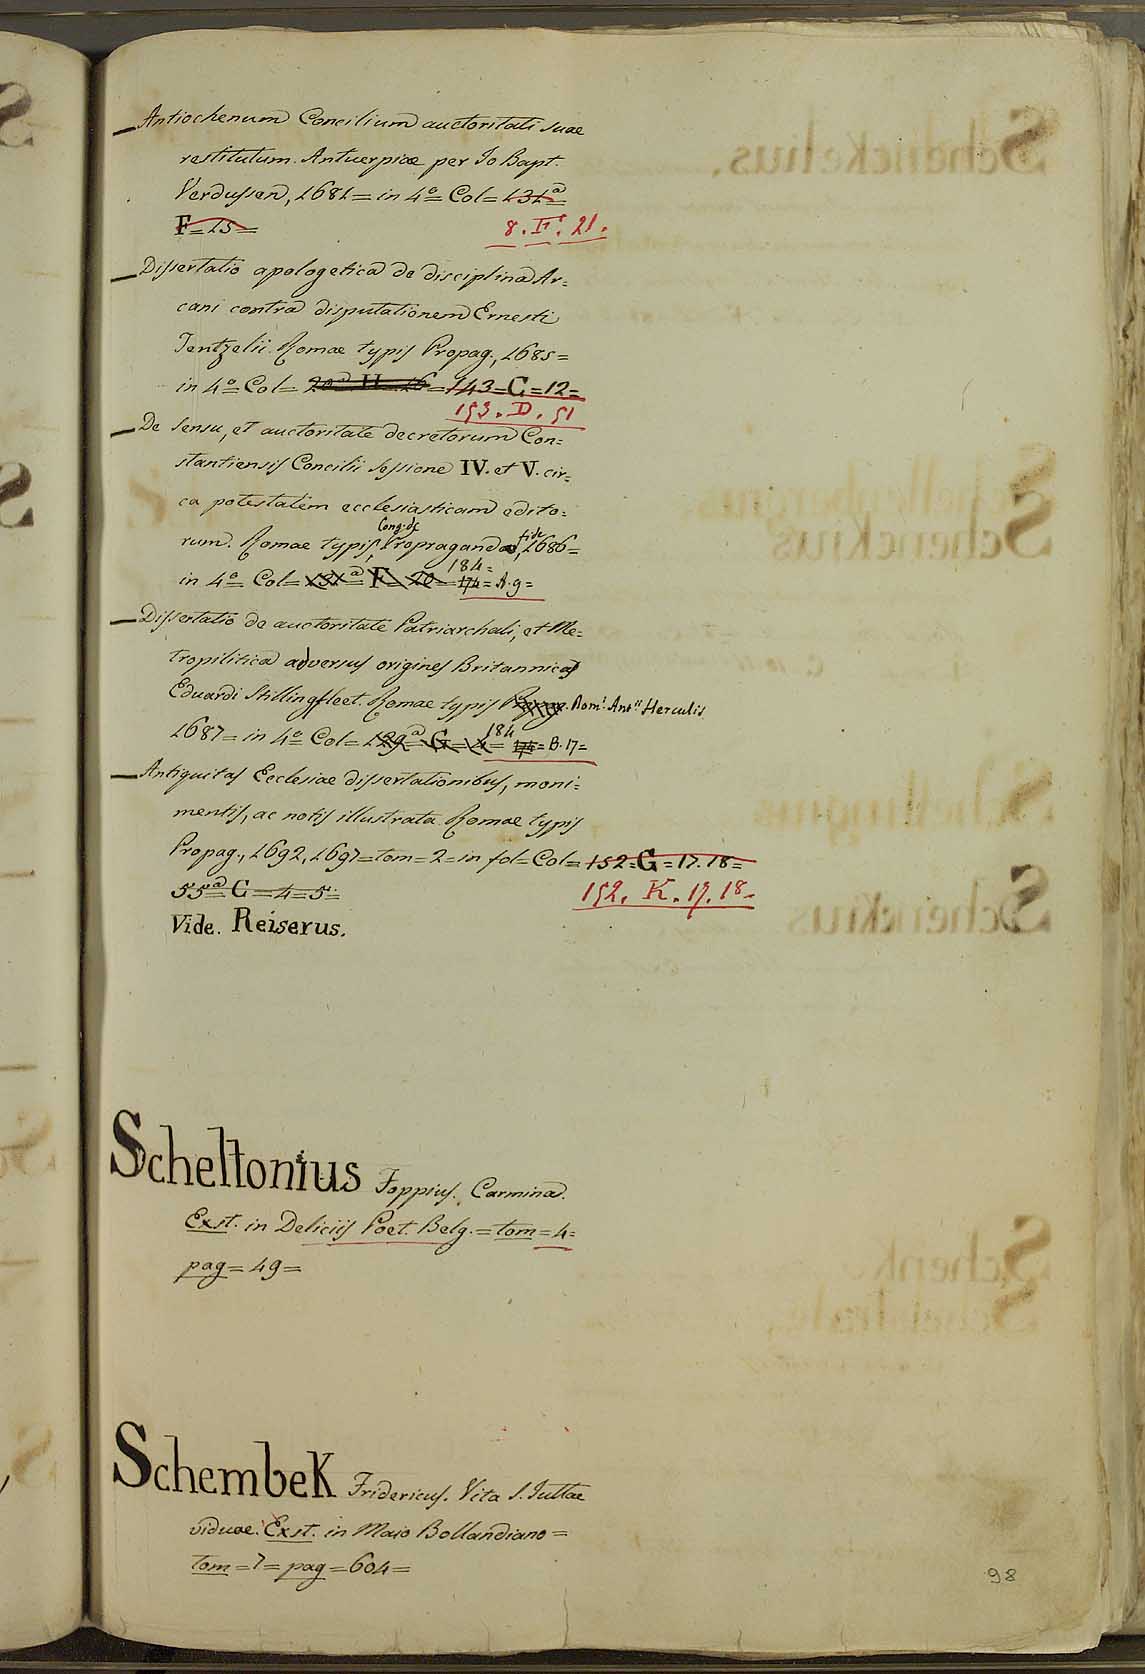 Antiochenum Concilium auctoritati suae
restitutum. Antuerpiae per Jo Bapt.
Verdussen, 1681= in 4º= Col= 131ª=
F=15=
8. F. 21.
Dissertatio apologetica de disciplina Ar=
cani contra disputationem Ernesti
Tentzelii. Romae typis Propag., 1685=
in 4º= Col= 20ª H=16=143=C=12=
153. D. 51
De sensu, et auctoritate decretorum Con=
stantiensis Concilii sessione IV. et V. cir=
ca potestatem ecclesiasticam edito=
Cong. de fide
rum. Romae typis, Propraganda, 1686=
184=
in 4º= Col= 131ª F=20=174= A.9=
Dissertatio de auctoritate Patriarchali, et Me=
tropilitica adversus origines Britannicas
Eduardi Stillingfleet. Romae typis Rom. Antii Herculis
184
1687= in 4º= Col= 129ª= G=4= 174= B.17=
Antiquitas Ecclesiae dissertationibus, moni=
mentis, ac notis illustrata. Romae typis
Propag., 1692, 1697=tom=2=in fol=Col=152=G=17.18=
55ª C=4=5=
152. K. 17. 18.
Vide. Reiserus.
Scheltonius Foppius. Carmina.
Exst. in Deliciis Poet. Belg.=tom=4=
pag=49=
Schembek Fridericus. Vita S. Juttae
viduae. Exst. in Maio Bollandiano=
tom=7=pag=604=
98
Schenckelius.
Schenckius
Schenckius
Schenk